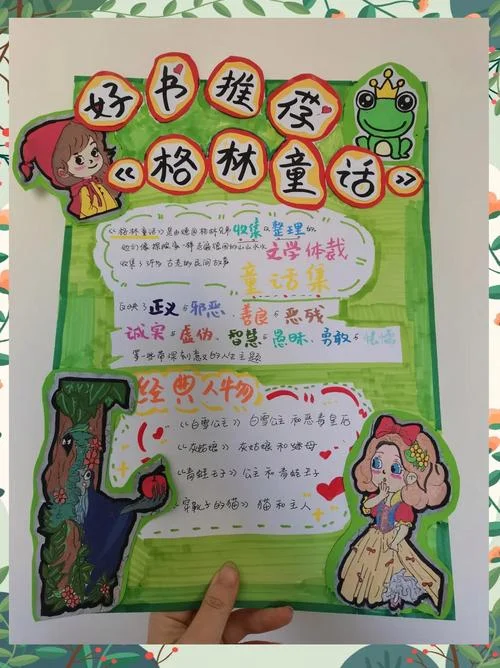 好书推荐
《格林童话》
《格林童话》是由德国格林兄弟收集、整理的
他们像探险家一样走遍德国的山山水水 文学体裁
收集了许多古老的民间故事
童话集
反映了正义与邪恶、善良与恶残
诚实与虚伪、智慧与愚昧、勇敢与怯懦
等一些带深刻意义的人生主题
经典人物
《白雪公主》白雪公主和恶毒皇后
《灰姑娘》灰姑娘和继母
《青蛙王子》公主和青蛙王子
《穿靴子的猫》猫和主人